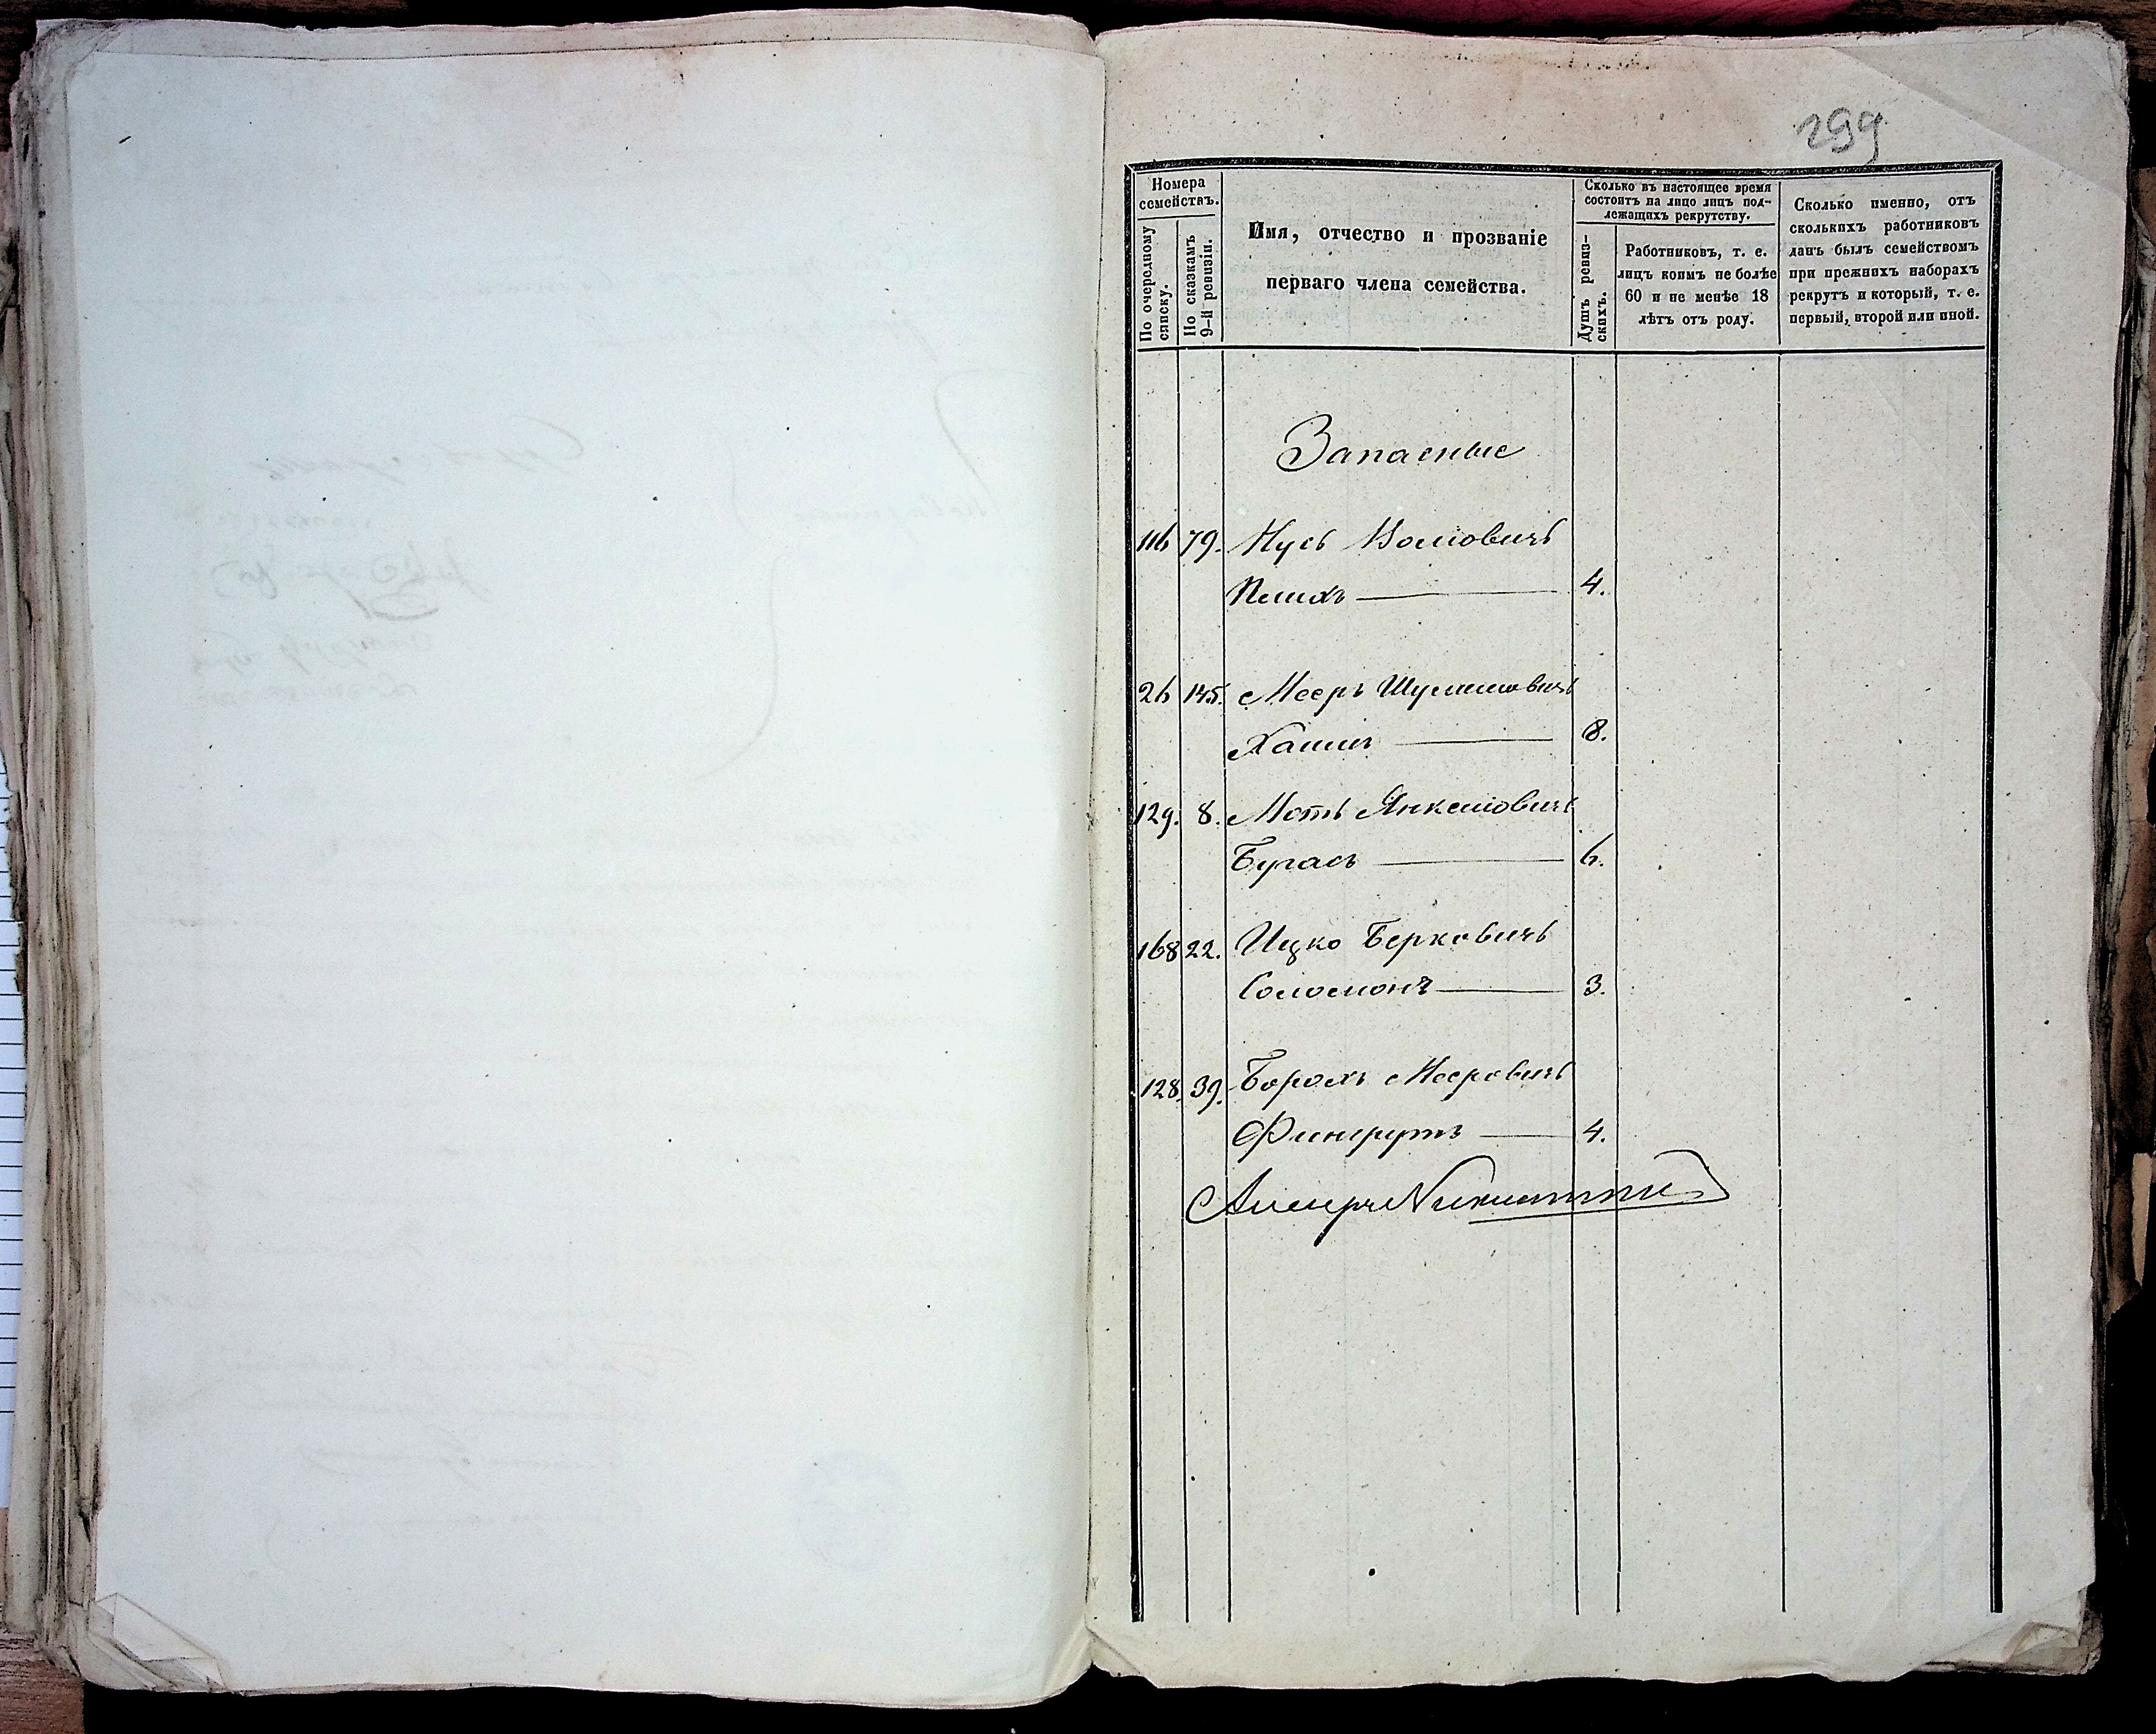 299
Номера
семействъ.
По очередному
списку.
По сказкамъ
9-й ревизіи.
Имя, отчество и прозваніе
перваго члена семейства.
Сколько въ настоящее время
состоитъ на лицо лицъ под-
лежащихъ рекрутству.
Душъ ревиз-
скихъ.
Работниковъ, т. е.
лицъ коимъ не болѣе
60 и не менѣе 18
лѣтъ отъ роду.
Сколько именно, отъ
сколькихъ работниковъ
данъ былъ семействомъ
при прежнихъ наборахъ
рекрутъ и который, т. е.
первый, второй или иной.
Запасные
116 79. Нусь
4.
26 145. Мееръ Шулимовичъ
Хаимъ 8.
129. 8. Моть Янкеліовичъ
6.
168 22. Ицко Берковичъ
Соломонъ 3.
128. 39. Борохъ Мееровичъ
Фингрутъ 4.